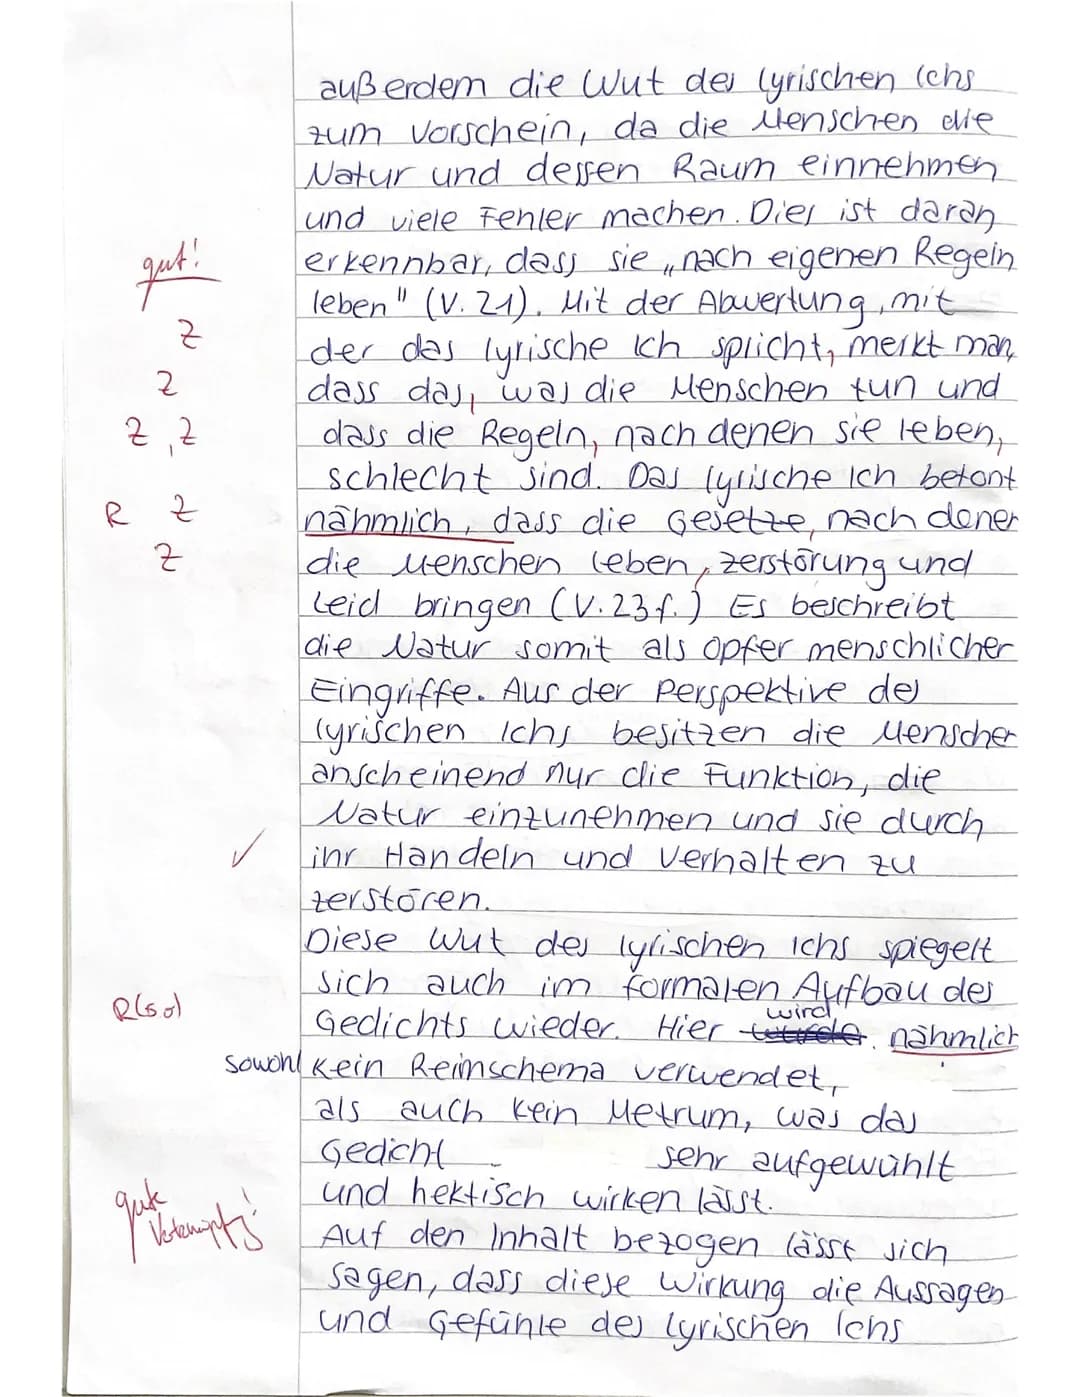 außerdem die Wut des lyrischen Ichs
zum Vorschein, da die Menschen die
Natur und dessen Raum einnehmen
und viele Fehler machen. Dies ist daran
gut!
erkennbar, dass sie „nach eigenen Regeln
leben" (V. 21). Mit der Abwertung, mit
Z
der das lyrische Ich spricht, merkt man,
Z
dass das, was die Menschen tun und
Z, Z
dass die Regeln, nach denen sie leben,
schlecht sind. Das lyrische Ich betont
R Z
nähmlich, dass die Gesetze, nach denen
Z
die Menschen leben, zerstörung und
Leid bringen (V. 23f.) Es beschreibt
die Natur somit als Opfer menschlicher
Eingriffe. Aus der Perspektive des
lyrischen Ichs besitzen die Menschen
anscheinend nur die Funktion, die
Natur einzunehmen und sie durch
✓ ihr Handeln und Verhalten zu
zerstören.
Diese Wut des lyrischen Ichs spiegelt
sich auch im formalen Aufbau des
R(so)
wird
Gedichts wieder. Hier wurde nähmlich
sowohl kein Reimschema verwendet,
als auch kein Metrum, was das
Gedicht sehr aufgewühlt
und hektisch wirken lässt.
gute
Verknüpfg!
Auf den Inhalt bezogen lässt sich
sagen, dass diese Wirkung die Aussagen
und Gefühle des lyrischen Ichs